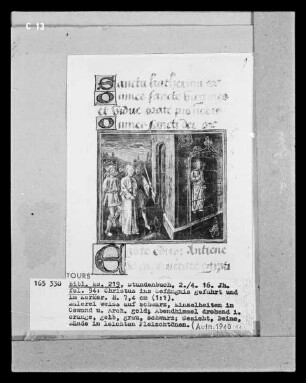 C 13
Sancta katherina or
Omnes sancte virgines
et vidue orate pro nobis
Omnes sancti dei or
TOURS
165 330
Bibl. ms. 219, Stundenbuch, 2./4. 16. Jh.
fol. 94: Christus ins Gefängnis geführt und
im Kerker. H. 7,4 cm (1:1).
Malerei weiss auf schwarz, Einzelheiten in
Gewand u. Arch. gold; Abendhimmel drohend i.
orange, gelb, grau, schwarz; Gesicht, Beine,
Hände in leichten Fleischtönen. (Aufn. 1940